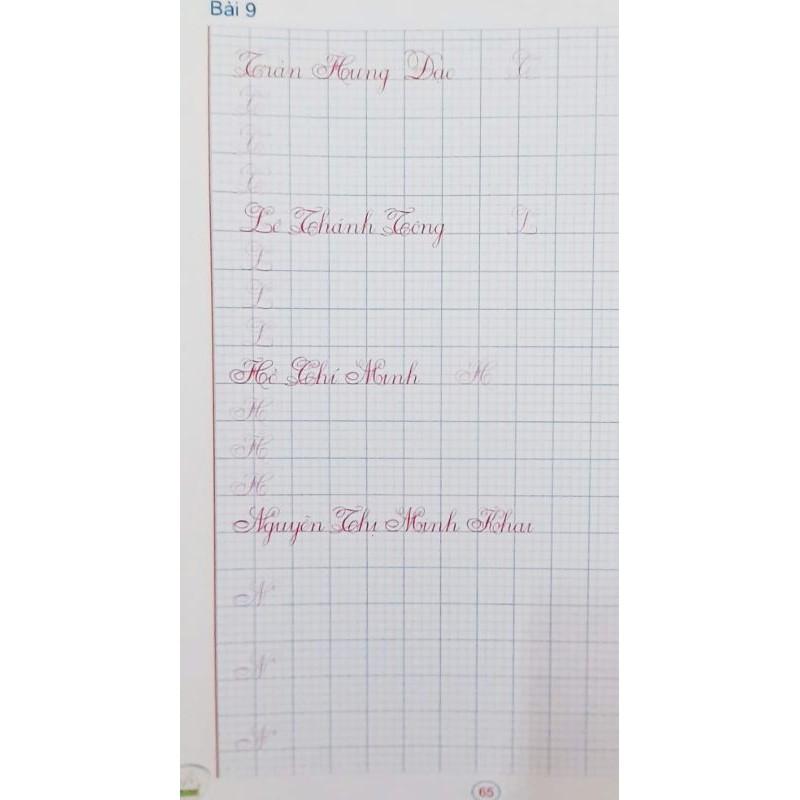 Bài 9
Trần Hưng Đạo T
T
T
T
Lê Thánh Tông L
L
L
L
Hồ Chí Minh H
H
H
H
Nguyễn Thị Minh Khai
N
N
N
65